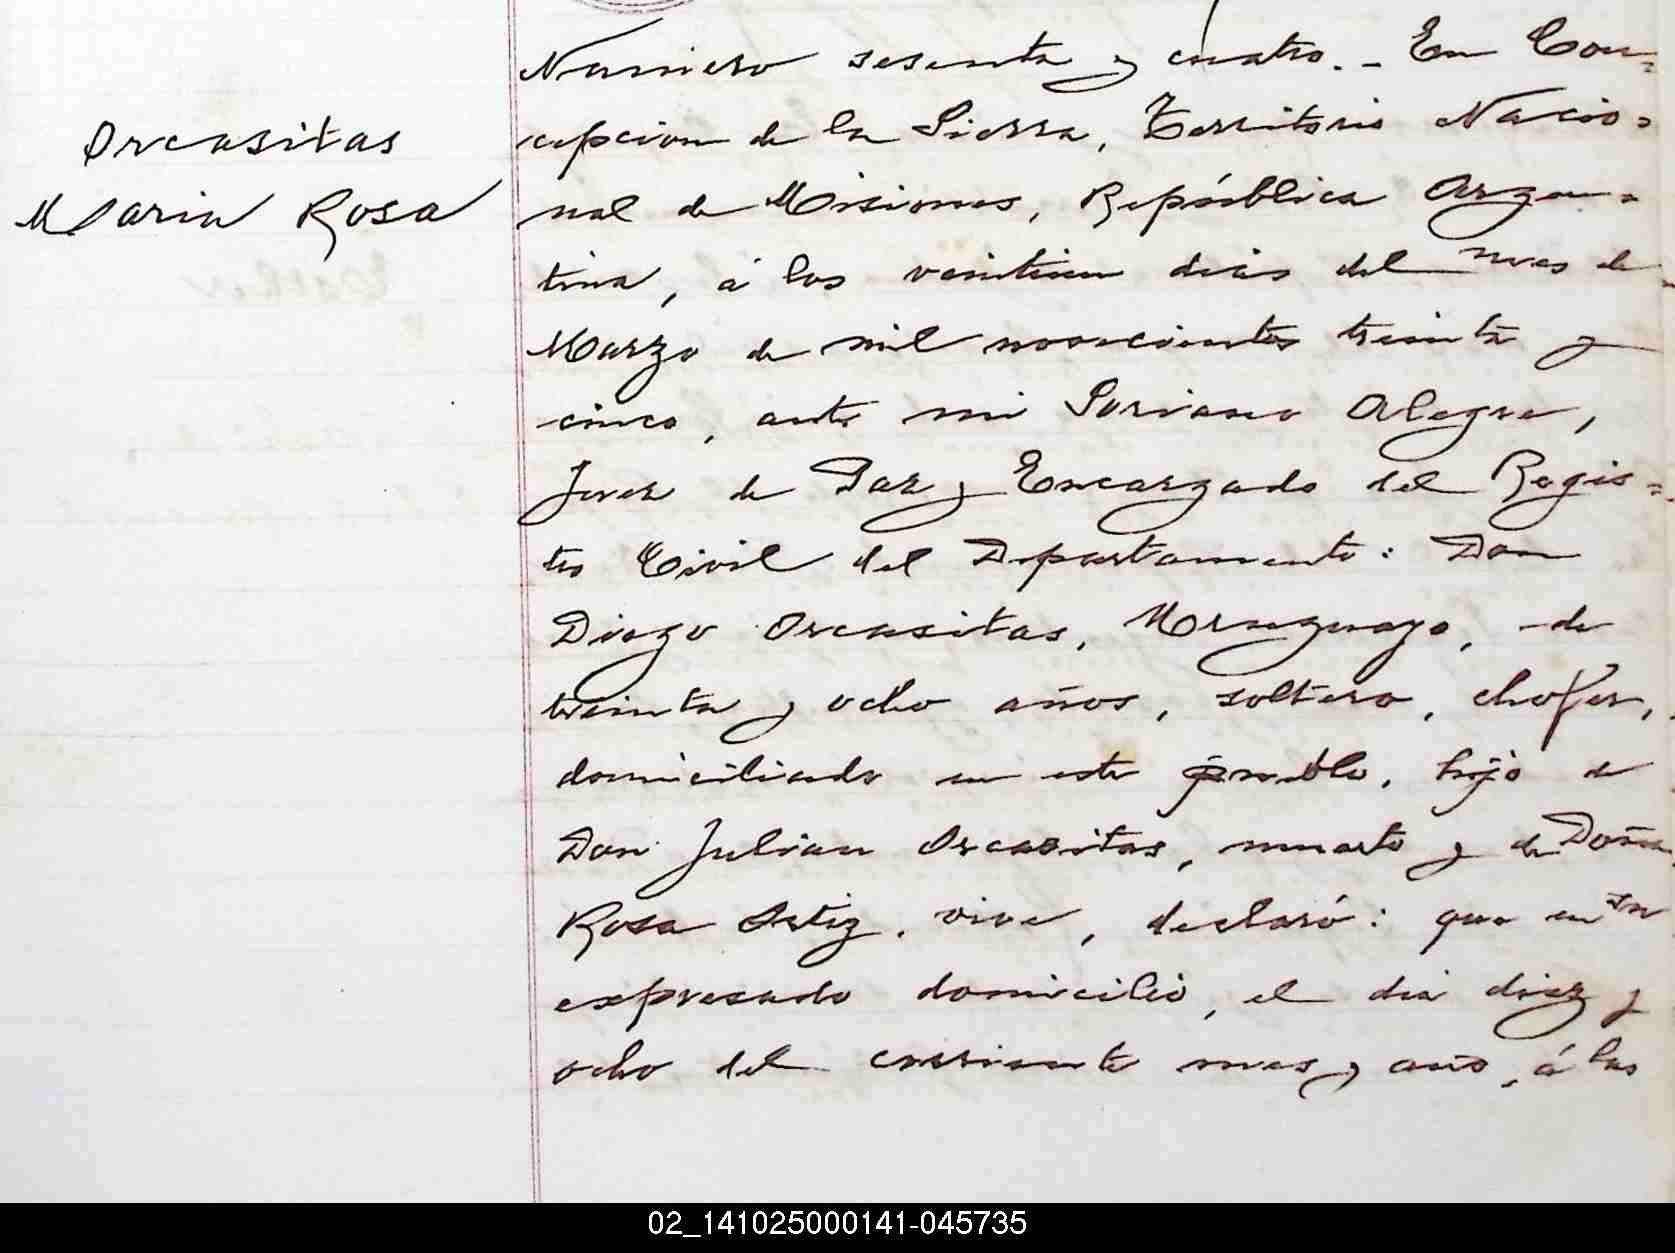 Orcasitas
Maria Rosa
Numero sesenta y cuatro. - En Con-
cepcion de la Sierra, Territorio Nacio-
nal de Misiones, República Argen-
tina, á los veintiun dias del mes de
Marzo de mil novecientos treinta y
cinco, ante mi Soriano Alegre,
Juez de Paz y Encargado del Regis-
tro Civil del Departamento: Don
Diego Orcasitas, Uruguayo, de
treinta y ocho años, soltero, chofer,
domiciliado en este pueblo, hijo de
Don Julian Orcasitas, muerto y de Doña
Rosa Ortiz, vive, declaró: que en su
expresado domicilio, el dia diez y
ocho del corriente mes y año, á las
02_141025000141-045735